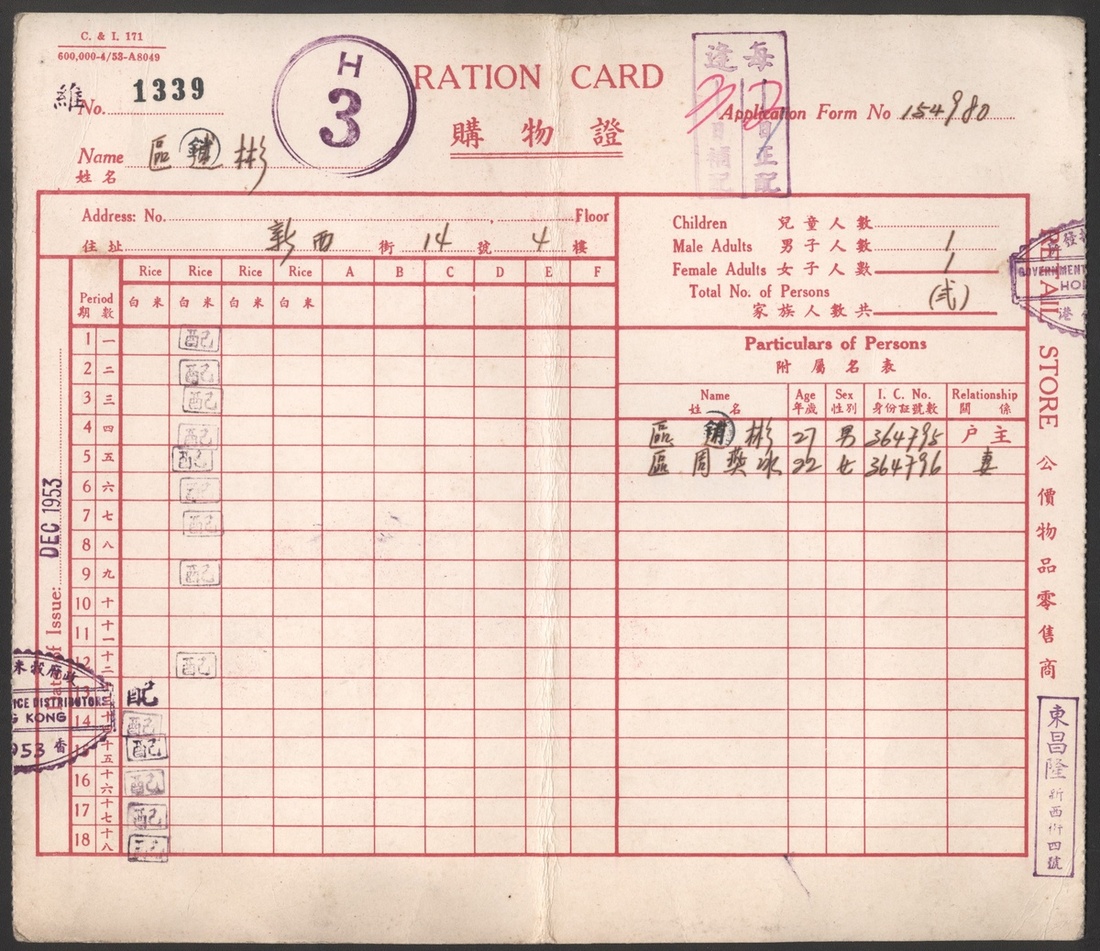 C. & I. 171
600,000-4/53-A8049
維
No. 1339
H
3
RATION CARD
購物證
每逢
日正配
日補配
Application Form No 154980
Name 區鏽彬
姓名
Address: No. Floor
住址 新西 街 14 號 4 樓
Children 兒童人數
Male Adults 男子人數 1
Female Adults 女子人數 1
Total No. of Persons
家族人數共 (弍)
Rice Rice Rice Rice A B C D E F
Period
期數
白米 白米 白米 白米
Particulars of Persons
附屬名表
Name Age Sex I. C. No. Relationship
姓名 年歲 性別 身份証號數 關係
區 彬 27 男 364795 户主
區周燕冰 22 女 364796 妻
1 一 配
2 二 配
3 三 配
4 四 配
5 五 配
6 六 配
7 七 配
8 八
9 九 配
10 十
11 十一
12 十二 配
13 十三 配
14 十四 配
15 十五 配
16 十六 配
17 十七 配
18 十八 配
Date of Issue: DEC 1953
府政
RICE DISTRIBUTORS
KONG
1953 香
RETAIL STORE 公價物品零售商
GOVERNMENT
HO
港
東昌隆 新西街四號